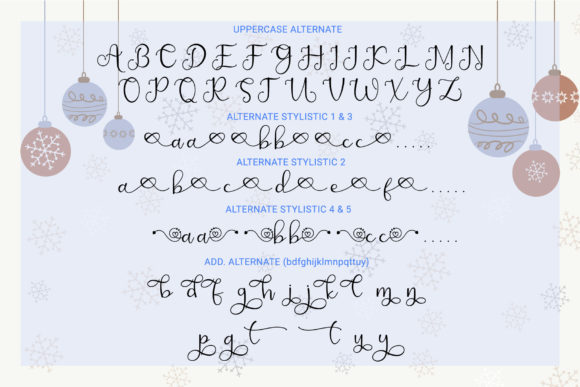 UPPERCASE ALTERNATE
A B C D E F G H I J K L M N
O P Q R S T U V W X Y Z
ALTERNATE STYLISTIC 1 & 3
aa bb cc.....
ALTERNATE STYLISTIC 2
a b c d e f.....
ALTERNATE STYLISTIC 4 & 5
aa bb cc.....
ADD. ALTERNATE (bdfghijklmnpqttuy)
b d f g h i j k l m n
p q t t u y